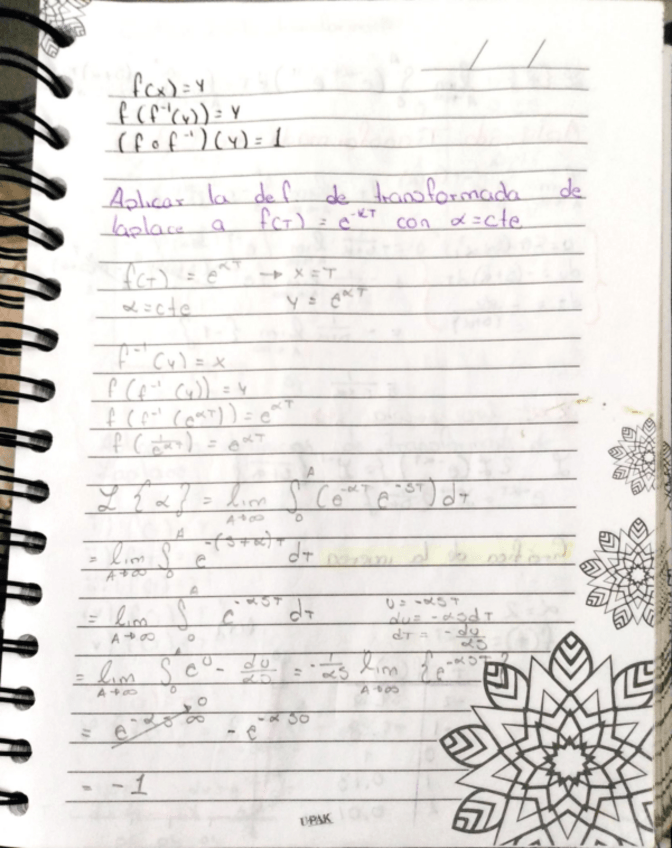 f(x) = y
f(f⁻¹(y)) = y
(f o f⁻¹)(y) = 1
Aplicar la def de transformada de
laplace a f(T) = e^-αT con α = cte
f(T) = e^αT → x = T
α = cte y = e^αT
f⁻¹(y) = x
f(f⁻¹(y)) = y
f(f⁻¹(e^αT)) = e^αT
f(1/e^αT) = e^αT
L{α} = lim A→∞ ∫₀^A (e^-αT e^-ST) dT
= lim A→∞ ∫₀^A e^-(S+α)T dT
= lim A→∞ ∫₀^A e^-αST dT U = -αST
du = -αSdT
dT = -du/αS
= lim A→∞ ∫₀^A e^U - du/αS = -1/αS lim A→∞ {e^-αST}
= e^-αS∞ → 0 - e^-αS0
= -1
UPAK